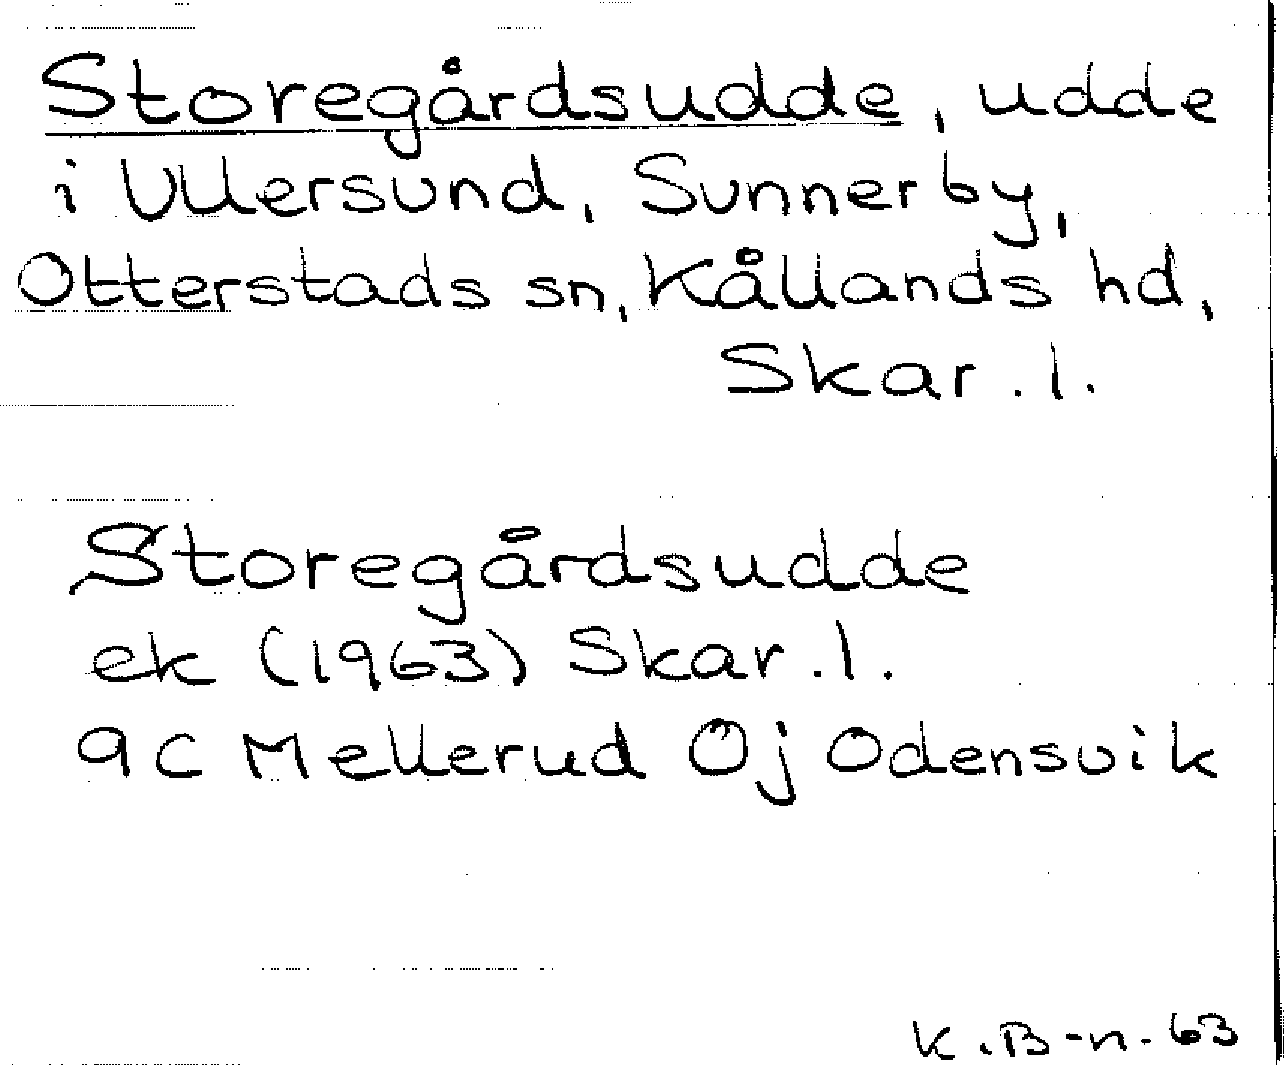 Storegårdsudde, udde
i Ullersund, Sunnerby,
Otterstads sn, Kållands hd,
Skar. l.
Storegårdsudde
ek (1963) Skar. l.
9C Mellerud 0j Odensvik
K.B-n-63